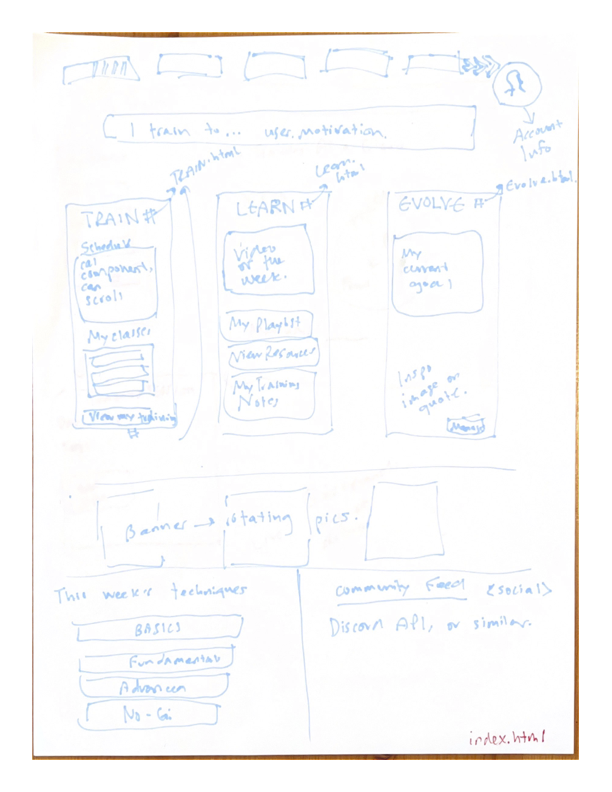 I train to... user.motivation.
Account
Info
TRAIN.html
Learn.
html
Evolve.html
TRAIN #
Schedule
cal
component,
can
scroll
My classes
View my training
#
LEARN #
Video
of the
week.
My Playlist
View Resources
My Training
Notes
EVOLVE #
My
current
goal
Inspo
image or
quote.
Banner → rotating pics.
This week's techniques
BASICS
Fundamentals
Advanced
No-Gi
Community Feed {social}
Discord API, or similar.
index.html